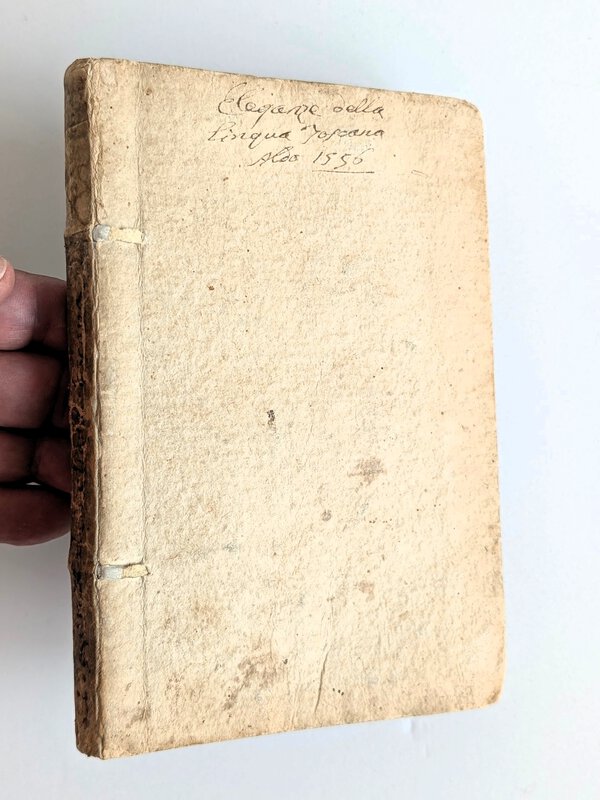 Eleganze della
lingua Toscana
Aldo 1556